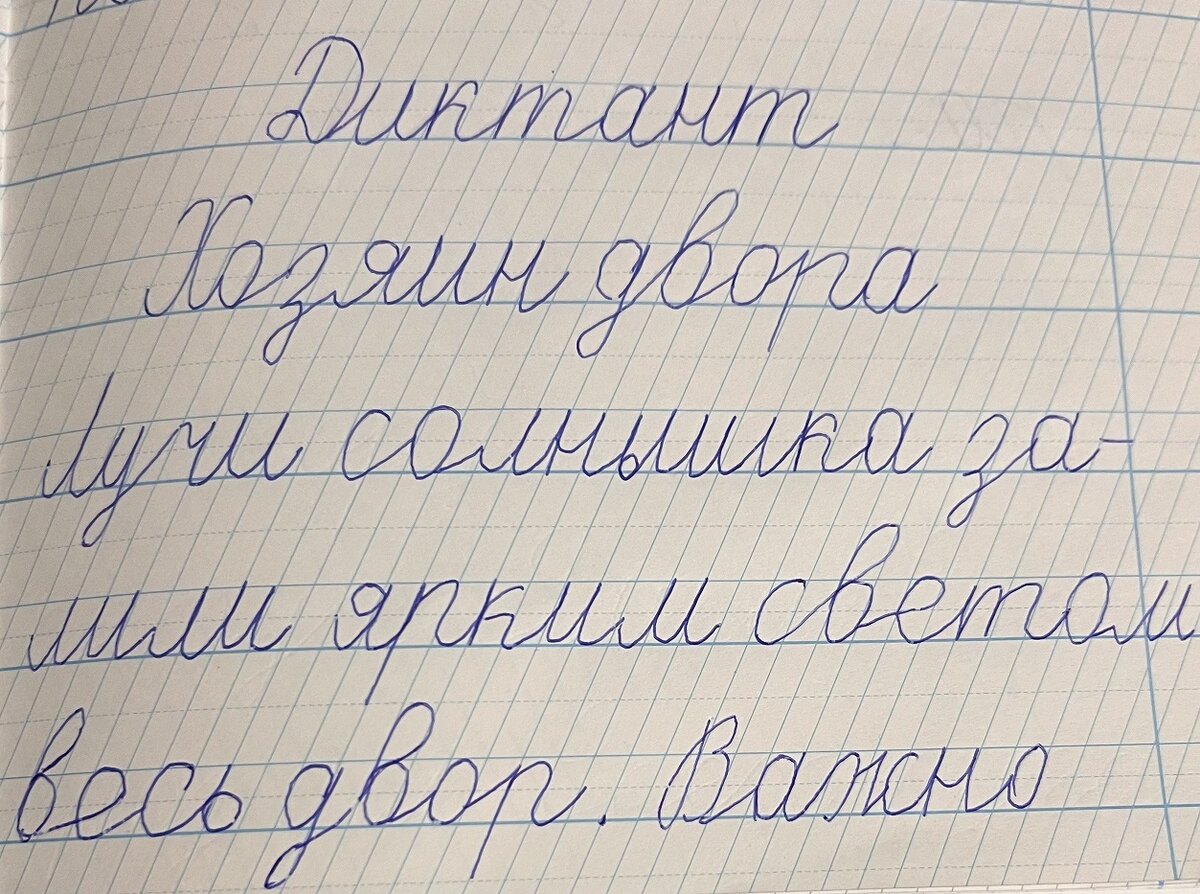 Диктант
Хозяин двора
Лучи солнышка за-
лили ярким светом
весь двор. Важно